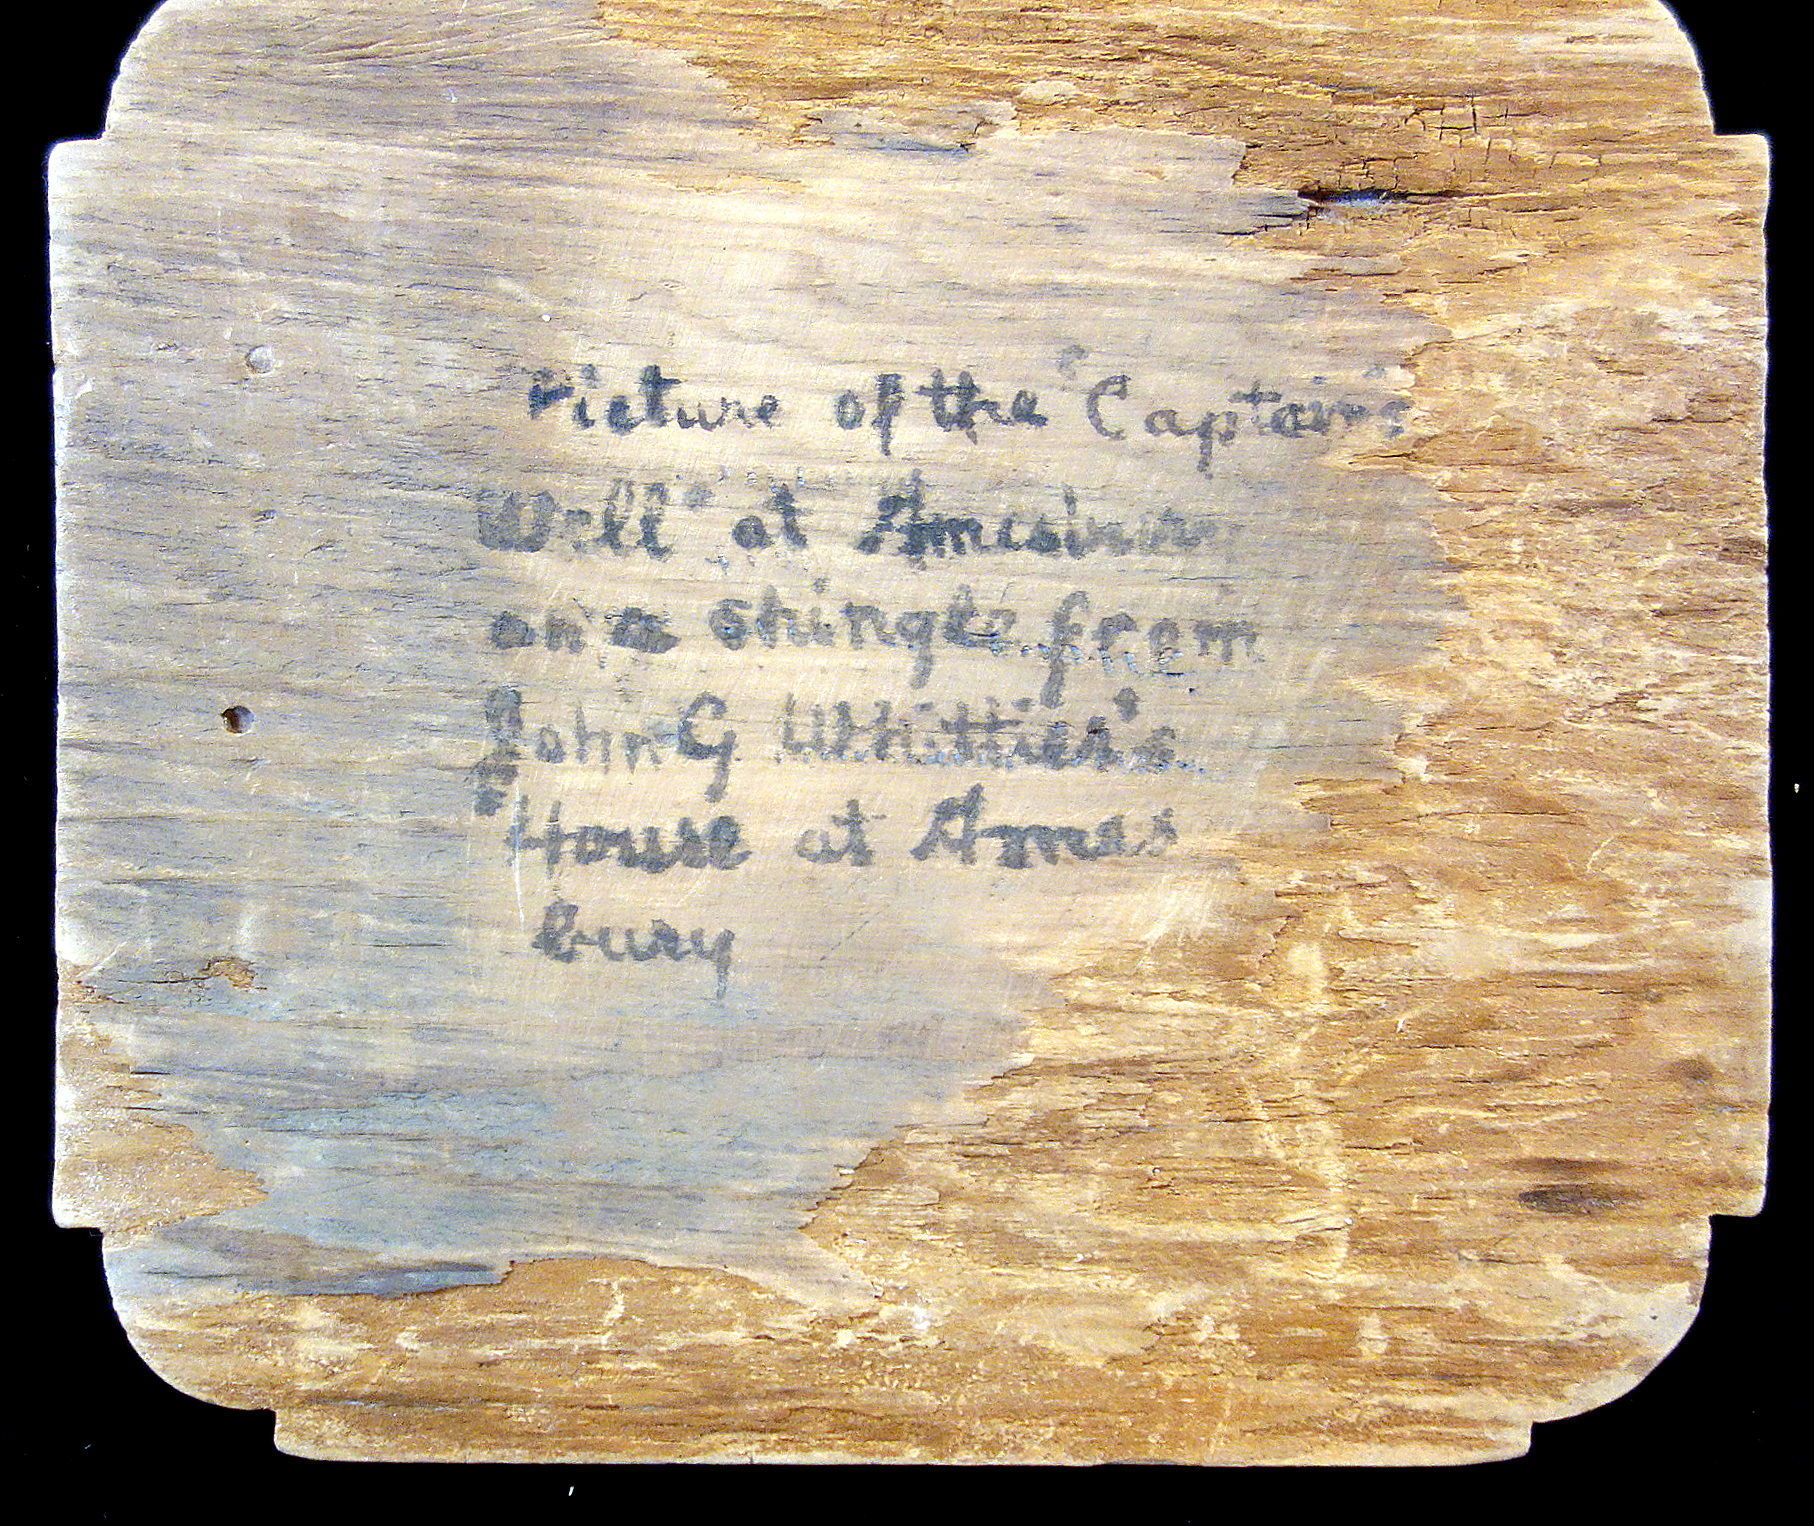 Picture of the "Captain's
Well" at Amesbury
on a shingle from
John G. Whittier's
House at Ames
bury